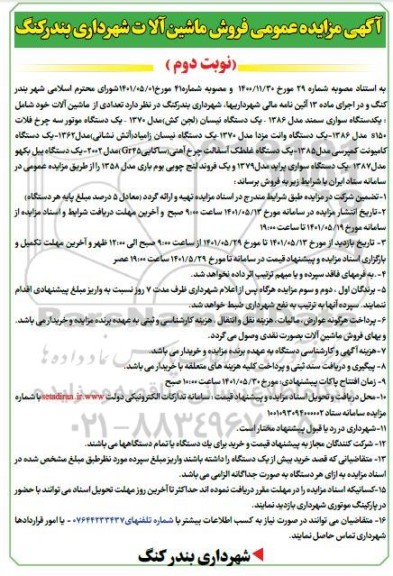 آگهی مزایده عمومی فروش ماشین آلات شهرداری بندرکنگ
(نوبت دوم)
به استناد مصوبه شماره ۲۹ مورخ ۱۴۰۰/۱۱/۳۰ و مصوبه شماره۴۱ مورخ۱۴۰۱/۰۵/۰۱شورای محترم اسلامی شهر بندر
کنگ و در اجرای ماده ۱۳ آئین نامه مالی شهرداریها، شهرداری بندرکنگ در نظر دارد تعدادی از ماشین آلات خود شامل
: یکدستگاه سواری سمند مدل ۱۳۸۶ - یک دستگاه نیسان (لجن کش)مدل ۱۳۷۰ - یک دستگاه موتور سه چرخ فلات
۱۵۰s مدل ۱۳۸۶-یک دستگاه وانت مزدا مدل ۱۳۷۰-یک دستگاه نیسان زامیاد(آتش نشانی)مدل۱۳۶۲-یک دستگاه
کامیونت کمپرسی مدل۱۳۸۵-یک دستگاه غلطک آسفالت چرخ آهنی(ساکایی Gr۴۵)مدل۲۰۰۲-یک دستگاه بیل بکهو
مدل۱۳۸۷-یک دستگاه سواری پراید مدل۱۳۷۹ و یک فروند لنج چوبی بوم باری مدل ۱۳۵۸ را از طریق مزایده عمومی در
سامانه ستاد ایران با شرایط زیر به فروش برساند :
۱-تضمین شرکت در مزایده طبق شرایط مندرج در اسناد مزایده تهیه و ارائه گردد (معادل ۵ درصد مبلغ پایه هر دستگاه)
۲-تاریخ انتشار مزایده در سامانه مورخ ۱۴۰۱/۰۵/۱۳ ساعت ۹:۰۰ صبح و آخرین مهلت دریافت شرایط و اسناد مزایده از
سامانه مورخ۱۴۰۱/۰۵/۱۹ تا ساعت ۱۹:۰۰
۳- تاریخ بازدید از مورخ ۱۴۰۱/۰۵/۱۳ تا مورخ ۱۴۰۱/۰۵/۲۹ از ساعت ۹:۰۰ صبح الی ۱۲:۰۰ ظهر و آخرین مهلت تکمیل و
بارگزاری اسناد مزایده و پیشنهاد قیمت در سامانه تا مورخ ۱۴۰۱/۵/۲۹ ساعت ۱۹:۰۰ عصر
۴- به فرمهای فاقد سپرده و یا مبهم ترتیب اثر داده نخواهد شد.
۵- برندگان اول ، دوم و سوم مزایده هرگاه پس از اعلام شهرداری ظرف مدت ۷ روز نسبت به واریز مبلغ پیشنهادی اقدام
ننمایند . سپرده آنها به ترتیب به نفع شهرداری ضبط خواهد شد.
۶- پرداخت هرگونه عوارض، مالیات ، هزینه نقل و انتقال ، هزینه کارشناسی و ثبتی به عهده برنده مزایده و خریدار می باشد.
و بهای فروش ماشین آلات بصورت نقدی وصول می گردد.
۷-هزینه آگهی و کارشناسی دستگاه به عهده برنده مزایده و خریدار می باشد.
۸- پیگیری و دریافت سند ثبتی و پرداخت کلیه هزینه های متعلقه با خریدار می باشد.
۹- زمان افتتاح پاکات پیشنهادی: مورخ ۱۴۰۱/۰۵/۳۰ ساعت ۱۰:۰۰ صبح
۱۰-محل دریافت و تحویل اسناد مزایده و پیشنهاد قیمت : سامانه تدارکات الکترونیکی دولت www.setadiran.ir با شماره
مزایده سامانه ستاد ۱۰۰۱۰۹۳۰۹۴۰۰۰۰۰۲
۱۱-شهرداری در رد یا قبول پیشنهاد مختار است .
۱۲- شرکت کنندگان مجاز به پیشنهاد قیمت و خرید برای یک دستگاه یا تمام دستگاهها می باشند.
۱۳- متقاضیانی که قصد خرید بیش از یک دستگاه را داشته باشند واریز مبلغ سپرده مورد نظر طبق مبلغ مشخص شده در
اسناد مزایده به ازای هر دستگاه به صورت جداگانه الزامی می باشد.
۱۵-کسانیکه اسناد مزایده را در مهلت مقرر دریافت نموده اند حداکثر تا آخرین روز مهلت تحویل اسناد می توانند با حضور
در پارکینگ موتوری شهرداری بازدید نمایند.
۱۶- متقاضیان می توانند در صورت نیاز به کسب اطلاعات بیشتر با شماره تلفنهای۰۷۶۴۴۲۳۳۴۳۷ - یا امور قراردادها
شهرداری تماس حاصل نمایند.
شهرداری بندر کنگ
۰۲۱-۸۸۳۴۹۶۷۰